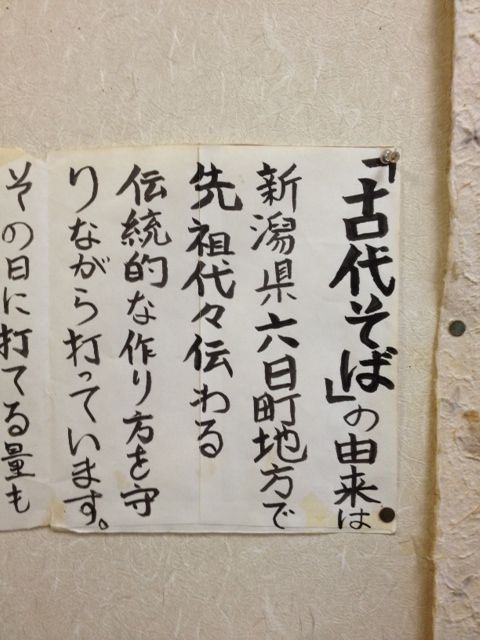 「古代そば」の由来は
新潟県六日町地方で
先祖代々伝わる
伝統的な作り方を守
りながら打っています。
その日に打てる量も